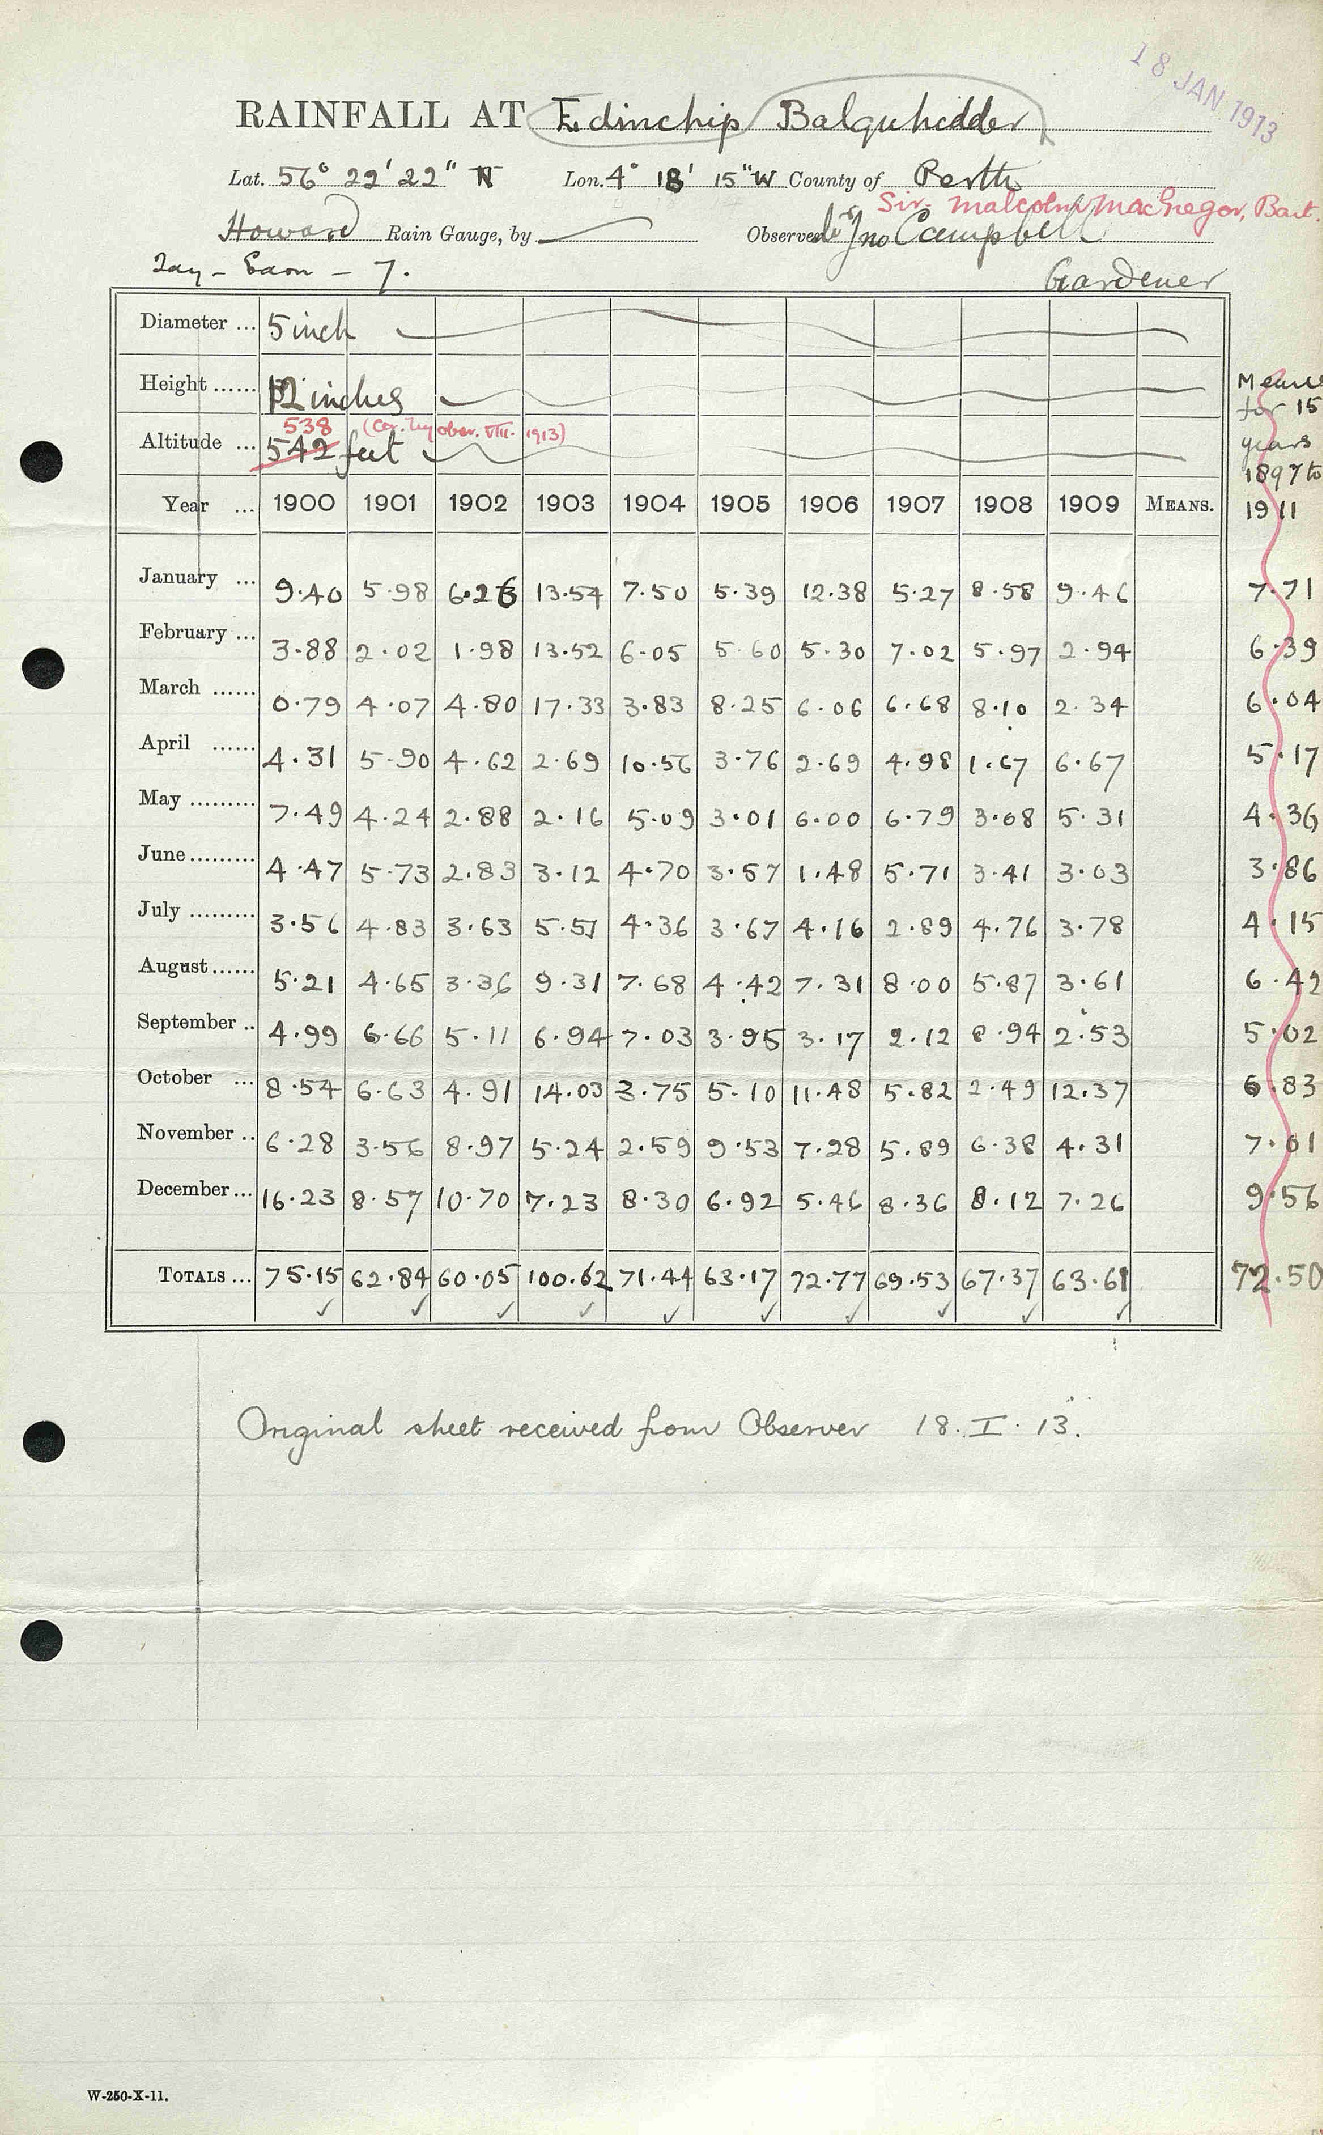 18 JAN. 1913
RAINFALL AT Edinchip Balquhidder
Lat. 56° 22' 22" N Lon. 4° 18' 15" W County of Perth
Sir Malcolm MacGregor, Bart.
Howard Rain Gauge, by Observer Jno Campbell
Tay - Earn - 7. Gardener
Diameter ... 5 inch
Height ...... 12 inches
538 (Cor. by obsr. VIII. 1913)
Altitude ... 542 feet
Means for 15 years 1897 to 1911
Year ... 1900 1901 1902 1903 1904 1905 1906 1907 1908 1909 MEANS.
January ... 9.40 5.98 6.26 13.54 7.50 5.39 12.38 5.27 8.58 9.46 7.71
February ... 3.88 2.02 1.98 13.52 6.05 5.60 5.30 7.02 5.97 2.94 6.39
March ...... 0.79 4.07 4.80 17.33 3.83 8.25 6.06 6.68 8.10 2.34 6.04
April ...... 4.31 5.90 4.62 2.69 10.56 3.76 2.69 4.98 1.67 6.67 5.17
May ......... 7.49 4.24 2.88 2.16 5.09 3.01 6.00 6.79 3.08 5.31 4.36
June ......... 4.47 5.73 2.83 3.12 4.70 3.57 1.48 5.71 3.41 3.03 3.86
July ......... 3.56 4.83 3.63 5.51 4.36 3.67 4.16 2.89 4.76 3.78 4.15
August ...... 5.21 4.65 3.36 9.31 7.68 4.42 7.31 8.00 5.87 3.61 6.42
September .. 4.99 6.66 5.11 6.94 7.03 3.95 3.17 2.12 8.94 2.53 5.02
October ... 8.54 6.63 4.91 14.03 3.75 5.10 11.48 5.82 2.49 12.37 6.83
November .. 6.28 3.56 8.97 5.24 2.59 9.53 7.28 5.89 6.38 4.31 7.01
December ... 16.23 8.57 10.70 7.23 8.30 6.92 5.46 8.36 8.12 7.26 9.56
TOTALS ... 75.15 62.84 60.05 100.62 71.44 63.17 72.77 69.53 67.37 63.61 72.50
Original sheet received from Observer 18. I. 13.
W-250-X-11.